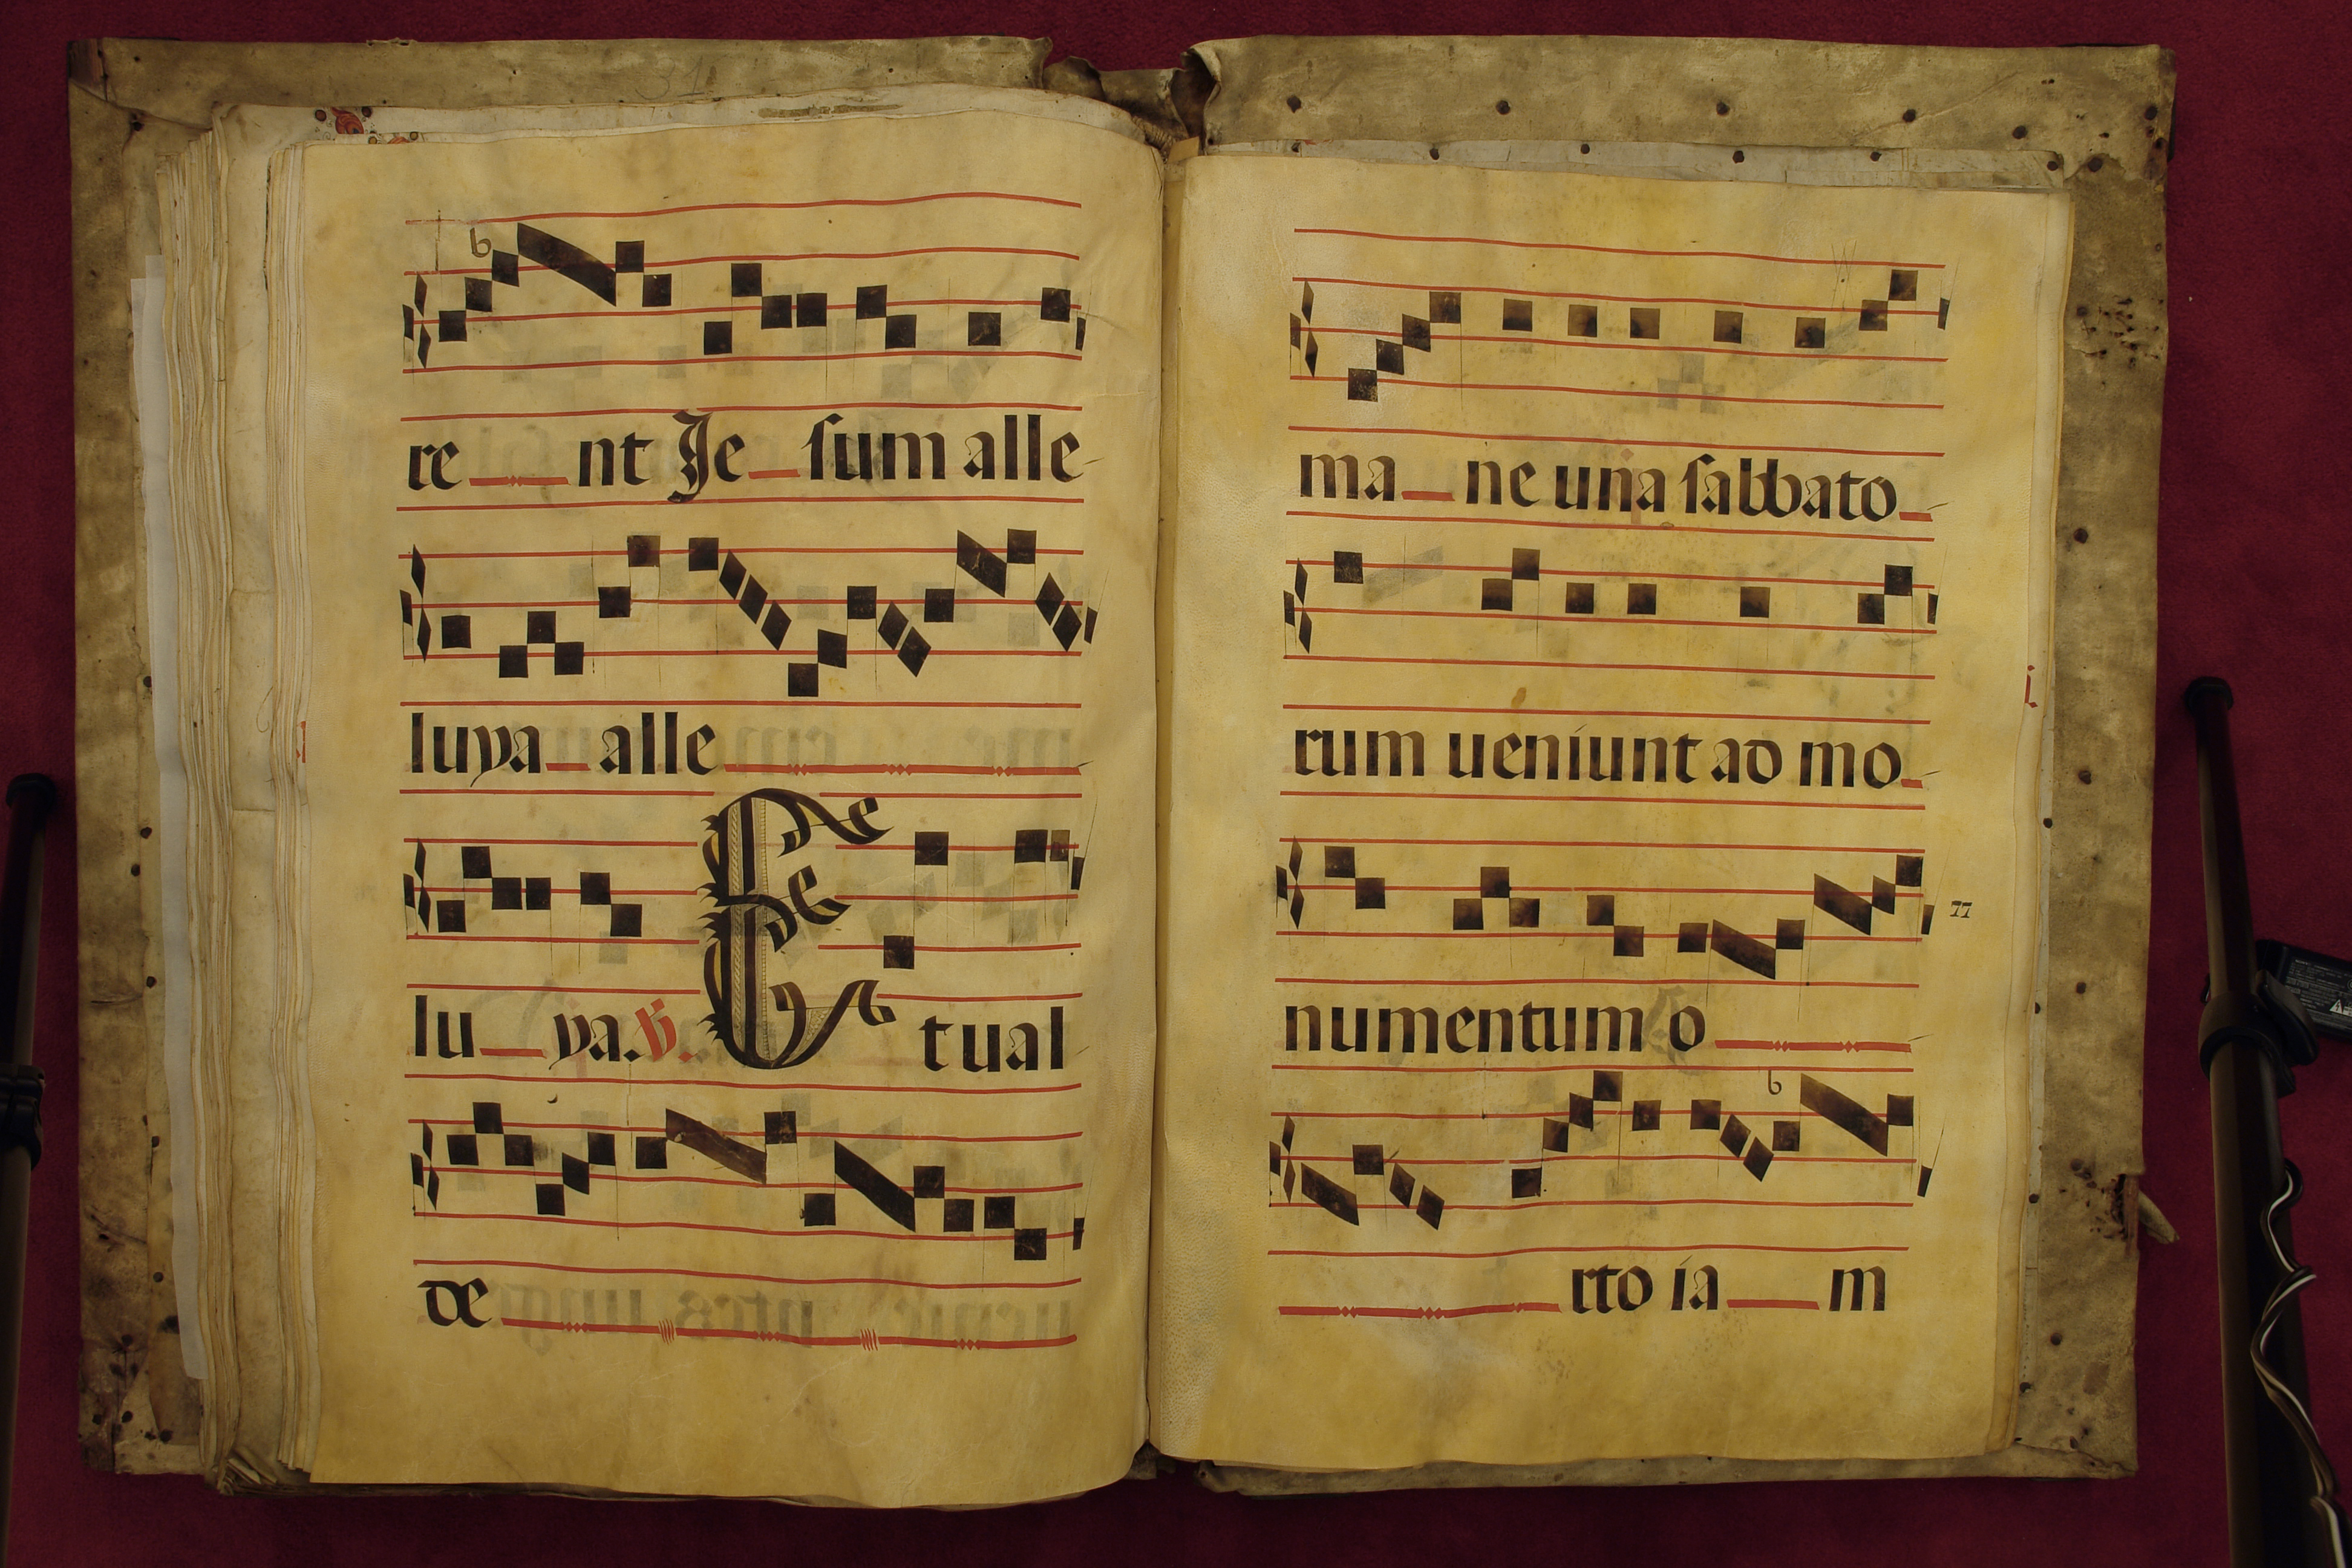 re nt Je sum alle
luya alle
lu ya. ℣. Et ual
de
ma ne una sabbato
rum ueniunt ad mo
77
numentum o
rto ia m